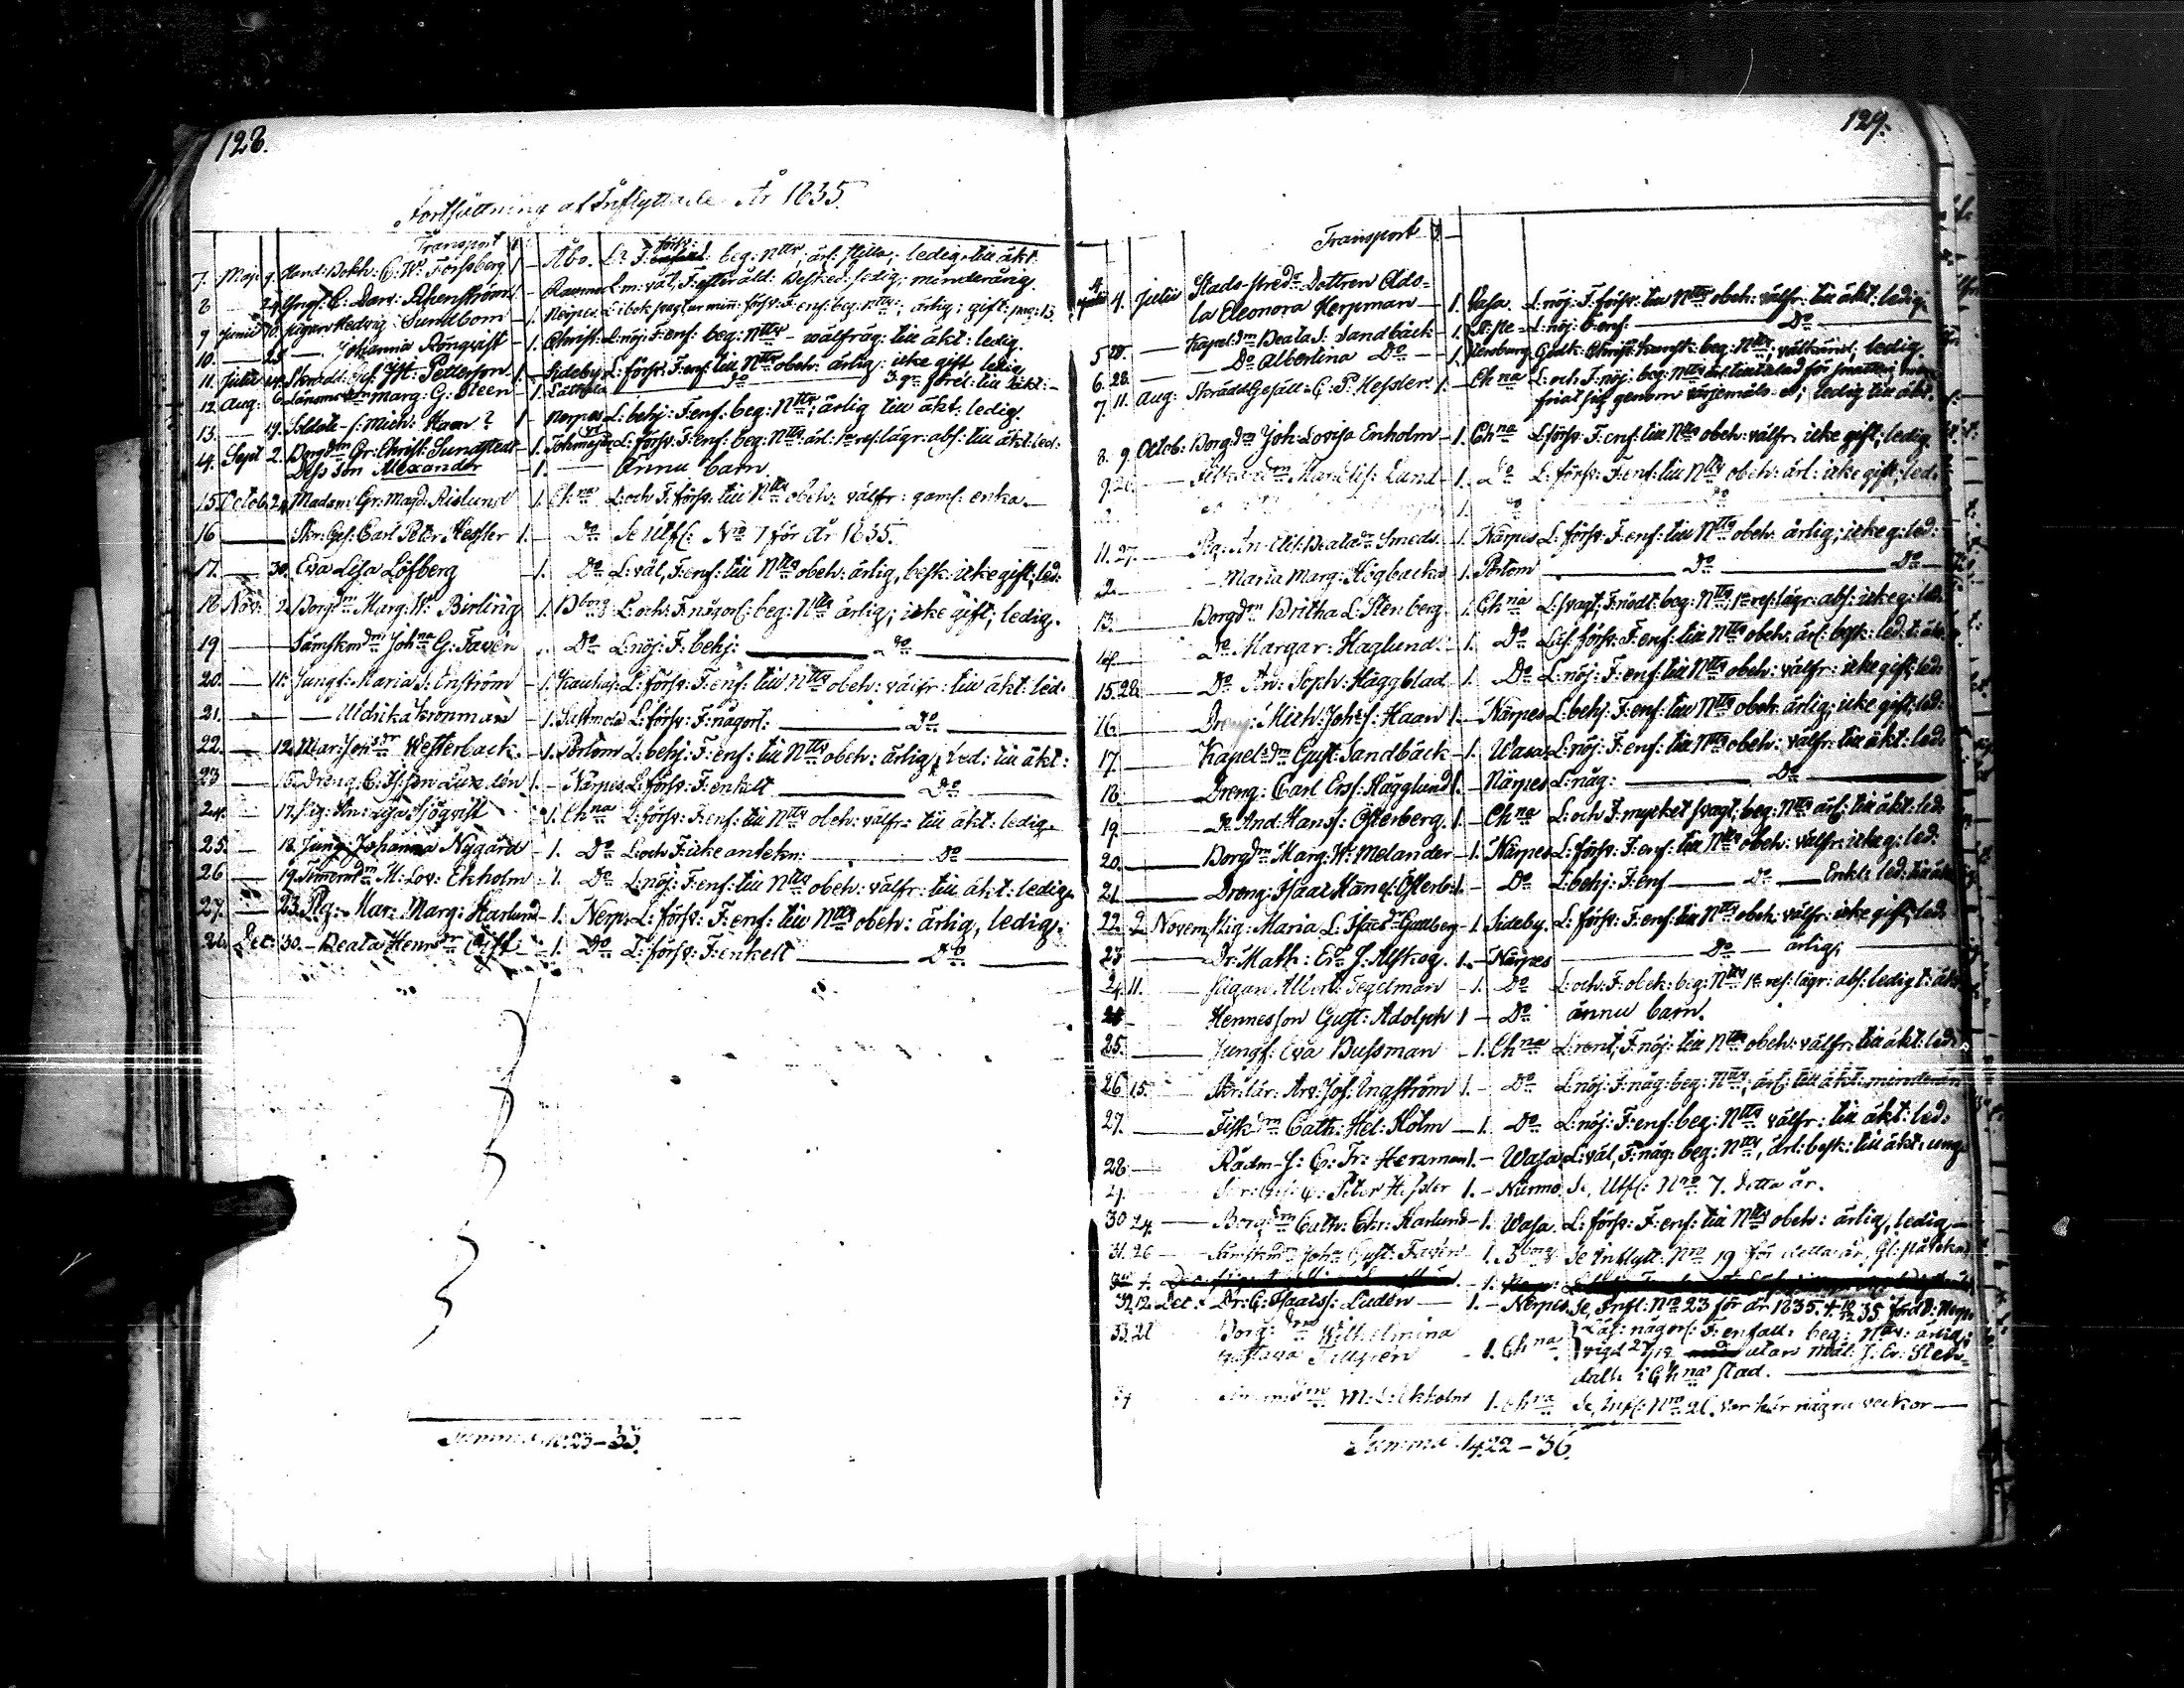 128.
Fortsättning af Inflyttade År 1835.
Transport
7. Maji 9. Hand: Bokh: C. W. Forssberg 1 - Åbo. L: F: försv: beg: Nttv; ärl: stilla; ledig till äkt.
8 24 Yngl: C. Dav: Åkerström 1 - Raumo L m: väl, F: efter åld: Besked: ledig; minderårig.
9 Junii 10. Pigan Hedvig Sundbom - 1. Nerpes L: i bok svagt ur minn: försv: F: enf: beg: Nttv: ärlig; gift: pag: 13
10. - 25 - Johanna Rönqvist - 1. Christ: L: nöj: F: enf: beg: Nttv - välfräg: till äkt: ledig.
11. Julii 14. Skrädd: Ges: JH: Petterson. 1. - Sideby L: försv: F: enf: till Nttv obeh: ärlig; icke gift ledig
12. Aug: 6 Länsms Marg: G: Steen - 1. Lappfj
13. - 19. Soldate-s: Mich: Haan? 1 - Nerpes L: behj: F: enf: beg: Nttv; ärlig till äkt: ledig.
14. Sept 2. Borgdm Gr: Christ: Sundstedt - 1. L: försv: F: enf: beg: Nttv: ärl: 1e res: lägr: abs: till äkt: led:
Dess son Alexander - 1. - Ännu barn.
15 Octob. 24 Madam: Gr: Magd: Asklund 1. Chna L: och F: försv: till Nttv obeh: välfr: gaml: enka. -
16 - Skr: Ges: Carl Peter Hessler 1. - Do Se Utfl: No 7 för år 1835.
17. - 30. Eva Lisa Löfberg - 1. Do L: väl, F: enf: till Nttv obeh: ärlig, besk: icke gift; led:
18 Nov: 2. Borgdm Marg: W: Birling 1. Bborg L: och F: någorl: beg: Nttv ärlig; icke gift; ledig.
19 - Sämskmdm Johna G: Favén . Do L: nöj: F: behj: - Do -
20. - 11: Jungf: Maria S: Enström - 1. Kauhaj: L: försv: F: enf: till Nttv obeh: välfr: till äkt: led.
21. - - Uldrika Kronman - 1. Sastmola L: försv: F: någorl: - Do -
22. - 12. Mar: Johsdr Westerback. - 1. Portom L: behj: F: enf: till Nttv obeh: ärlig; led: till äkt:
23 - 15. Dreng: C: Is: son Luden 1. - Närpes L: försv: F: enkelt - Do -
24. - 17. Pig: An: Lisa Sjöqvist 1. Chna L: försv: F: enf: till Nttv obeh: välfr: till äkt: ledig.
25. - 18. Jung: Johanna Nygård - 1. Do L: och F: icke antekn: - Do -
26 - 19. Timermdm M: Lov: Ekholm - 1. Do L: nöj: F: enf: till Nttv obeh: välfr: till äkt: ledig.
27. - 23. Pig: Mar: Marg: Harlund - 1. Nerps L: försv: F: enf: till Nttv obeh: ärlig, ledig.
28. Dec: 30. - Beata Henrsdr - 1. Do L: försv: F: enkelt - Do -
Summa - 33.
129.
Transport
4. 4. Julii Stads-fiscdr Dottren Odo-
la Eleonora Herpman - 1. Vasa. L: nöj: F: försv: till Nttv obeh: välfr: till äkt: ledig.
5 28. - Kapel:dm Beata S: Sandbäck 1. St: Pe- L: nöj: F: enf: - Do -
6. 28. - Do Albertina Do - 1. tersburg Godk: Christ: kunsk: beg: Nttv, välkänd; ledig.
7 11. Aug: Skrädd Gesäll C: P: Hessler 1. - Chna L: och F: nöj: beg: Nttv
friat sig genom värjemåls ed; ledig till äkt.
8. 9. Octob: Borgdm Joh: Lovisa Enholm - 1. Chna L: försv: F: enf: till Nttv obeh: välfr: icke gift; ledig.
9. 26. - Lund - 1. Do L: försv: F: enf: till Nttv obeh: ärl: icke gift; led:
1. Do - Do
11. 27. - Pig: An: Beata Smeds. 1. Närpes L: försv: F: enf: till Nttv obeh: ärlig; icke g: led:
12. - Maria Marg: Högbacka 1. Portom - Do - Do -
13. - Borgdm Britha L: Stenberg 1. Chna L: svagt; F: nödt: beg: Nttv, 1e res: lägr: abs: icke g: led:
14. - Do Margar: Haglund. - 1. Do L: försv: F: enf: till Nttv obeh: ärl: besk: led: t: äk:
15. 28. - Do An: Soph: Häggblad 1. Do L: nöj: F: enf: till Nttv obeh: välfr: icke gift; led:
16. - Dreng: Mich: Johs: Haan 1. - Närpes L: behj: F: enf: till Nttv obeh: ärlig; icke gift; led:
17. - Kapelsdm Gust: Sandbäck - 1. Wasa L: nöj: F: enf: till Nttv obeh: välfr: till äkt: led:
18. - Dreng: Carl Ers: Hägglund 1. - Närpes L: någ: - Do -
19 - Dr And: Hans: Österberg. 1. - Chna L: och F: mycket svagt; beg: Nttv ärl: till äkt: led:
20. - Borgdm Marg: W: Melander - 1. Närpes L: försv: F: enf: till Nttv obeh: välfr: icke g: led:
21. - Dreng: Isaac Hans: Österb: 1. - Do L: behj: F: enf - Do - Enkl: led: till äkt
22. 2. Novem: Pig: Maria L: Isacsdr Gullberg - 1 Sideby. L: försv: F: enf: till Nttv obeh: välfr: icke gift; led:
23 - Dr: Math: Ers: s: Alskog. 1. - Närpes - Do - ärlig; -
24. 11. - Pigan Albert: Tegelman - 1. Do L: och F: obek: beg: Nttv 1e res: lägr: abs: ledig t: äkt
24 - Hennes son Gust: Adolph 1 - Do ännu barn.
25. - Jungf: Eva Bussman - 1. Chna L: rent, F: nöj: till Nttv obeh: välfr: till äkt: led:
26 15. Skr: lär: Arv: Jos: Ingström 1. - Do L: nöj: F: någ: beg: Nttv; ärl: till äkt: minderårig
27. - Fiskdm Cath: Hel: Holm - 1. Do L: nöj: F: enf: beg: Nttv välfr: till äkt: led:
28. - Rådm-s: C: Fr: Herzman 1. - Wasa L: väl, F: någ: beg: Nttv, ärl: besk: till äkt: ung:
29. Skr: Ges: C: Peter Hessler 1. - Närmo. Se, Utfl: Nro 7. detta år.
30 24. - Borgdm Cath: Chr: Harlund - 1. Wasa. L: försv: F: enf: till Nttv obeh: ärlig, ledig -
31. 26 - Sämskmdm Johna Gust: Favén - 1. Bborg Se Inflytt: Nro 19 för detta år,
32. 12. Dec: Dr: C: Isaacs: Luden - 1. - Nerpes Se, Infl: No 23 för år 1835.
33. 21 Borg: dm Wilhelmina Läs: någorl: F: enfalt: beg: Nttv: ärlig;
Gustava Tillgren - 1. Chna vigd 27/12 utan Mål: J. Er: Sten-
dahl i Chna stad. -
34 Timermdm M: L: Ekholm 1. Chna Se, Infl: Nro 26. Var här några veckor -
Summa 1422 - 36.